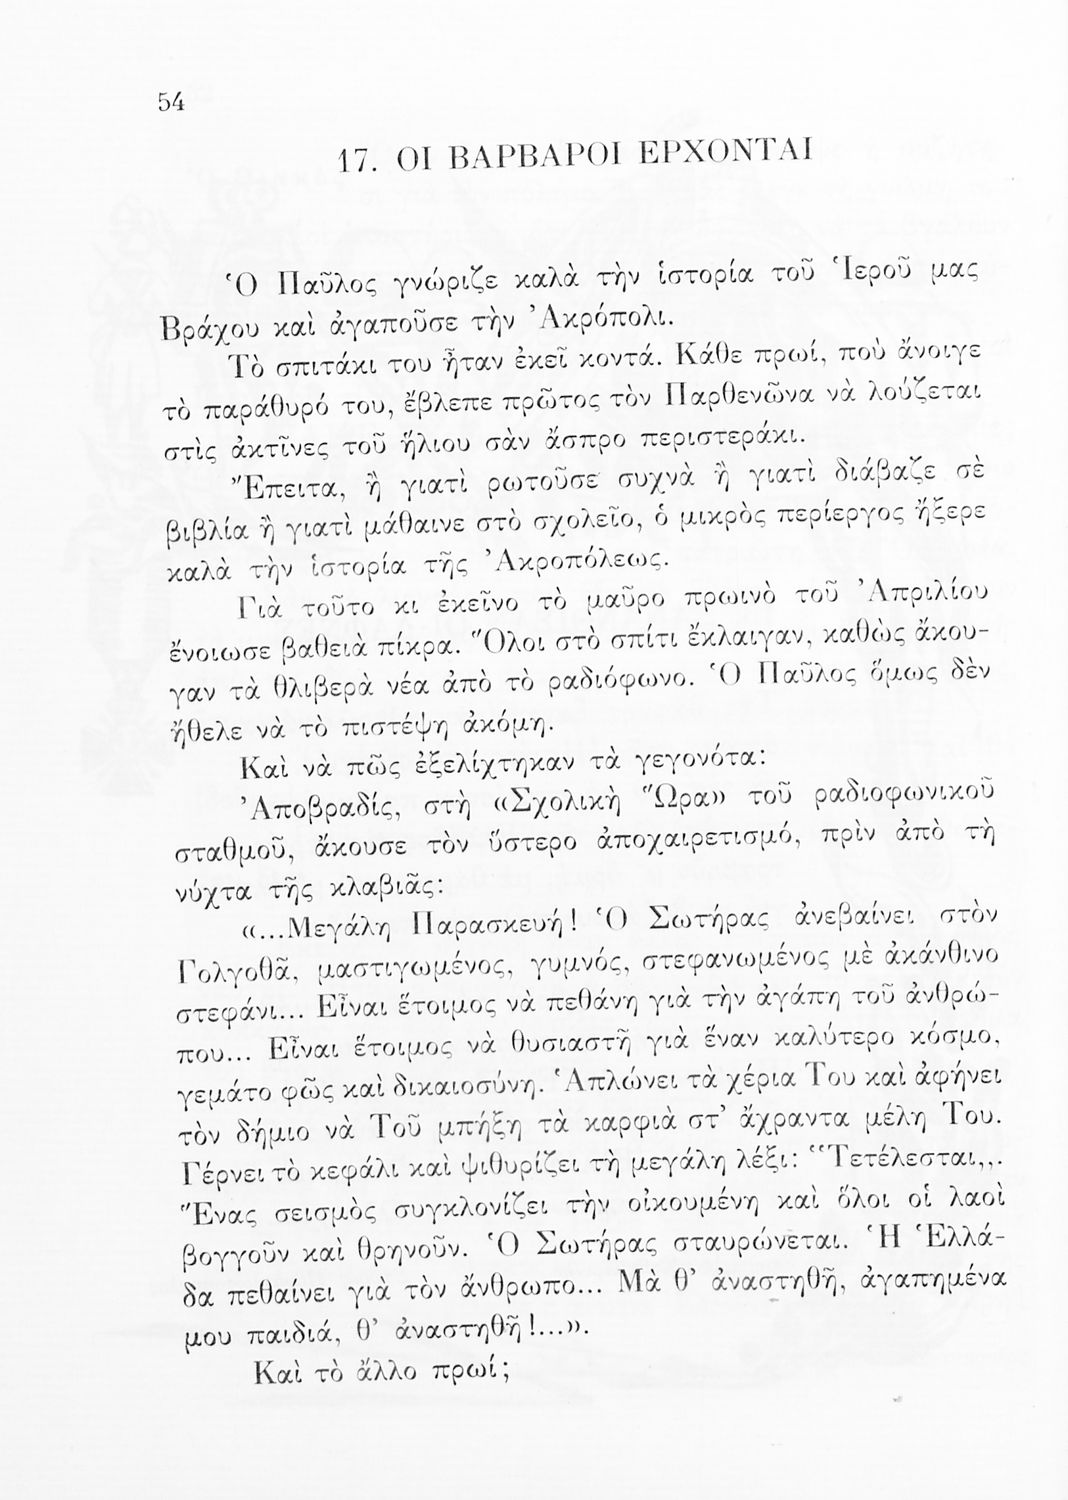 54
17. ΟΙ ΒΑΡΒΑΡΟΙ ΕΡΧΟΝΤΑΙ
Ὁ Παῦλος γνώριζε καλὰ τὴν ἱστορία τοῦ Ἱεροῦ μας
Βράχου καὶ ἀγαποῦσε τὴν Ἀκρόπολι.
Τὸ σπιτάκι του ἦταν ἐκεῖ κοντά. Κάθε πρωί, ποὺ ἄνοιγε
τὸ παράθυρό του, ἔβλεπε πρῶτος τὸν Παρθενῶνα νὰ λούζεται
στὶς ἀκτῖνες τοῦ ἥλιου σὰν ἄσπρο περιστεράκι.
Ἔπειτα, ἢ γιατὶ ρωτοῦσε συχνὰ ἢ γιατὶ διάβαζε σὲ
βιβλία ἢ γιατὶ μάθαινε στὸ σχολεῖο, ὁ μικρὸς περίεργος ἤξερε
καλὰ τὴν ἱστορία τῆς Ἀκροπόλεως.
Γιὰ τοῦτο κι ἐκεῖνο τὸ μαῦρο πρωινὸ τοῦ Ἀπριλίου
ἔνοιωσε βαθειὰ πίκρα. Ὅλοι στὸ σπίτι ἔκλαιγαν, καθὼς ἄκου-
γαν τὰ θλιβερὰ νέα ἀπὸ τὸ ραδιόφωνο. Ὁ Παῦλος ὅμως δὲν
ἤθελε νὰ τὸ πιστέψη ἀκόμη.
Καὶ νὰ πῶς ἐξελίχτηκαν τὰ γεγονότα:
Ἀποβραδίς, στὴ «Σχολικὴ Ὥρα» τοῦ ραδιοφωνικοῦ
σταθμοῦ, ἄκουσε τὸν ὕστερο ἀποχαιρετισμό, πρὶν ἀπὸ τὴ
νύχτα τῆς κλαβιᾶς:
«...Μεγάλη Παρασκευή! Ὁ Σωτήρας ἀνεβαίνει στὸν
Γολγοθᾶ, μαστιγωμένος, γυμνός, στεφανωμένος μὲ ἀκάνθινο
στεφάνι... Εἶναι ἕτοιμος νὰ πεθάνη γιὰ τὴν ἀγάπη τοῦ ἀνθρώ-
που... Εἶναι ἕτοιμος νὰ θυσιαστῆ γιὰ ἕναν καλύτερο κόσμο,
γεμάτο φῶς καὶ δικαιοσύνη. Ἁπλώνει τὰ χέρια Του καὶ ἀφήνει
τὸν δήμιο νὰ Τοῦ μπήξη τὰ καρφιὰ στ’ ἄχραντα μέλη Του.
Γέρνει τὸ κεφάλι καὶ ψιθυρίζει τὴ μεγάλη λέξι: “Τετέλεσται,,.
Ἕνας σεισμὸς συγκλονίζει τὴν οἰκουμένη καὶ ὅλοι οἱ λαοὶ
βογγοῦν καὶ θρηνοῦν. Ὁ Σωτήρας σταυρώνεται. Ἡ Ἑλλά-
δα πεθαίνει γιὰ τὸν ἄνθρωπο... Μὰ θ’ ἀναστηθῆ, ἀγαπημένα
μου παιδιά, θ’ ἀναστηθῆ!...».
Καὶ τὸ ἄλλο πρωί;